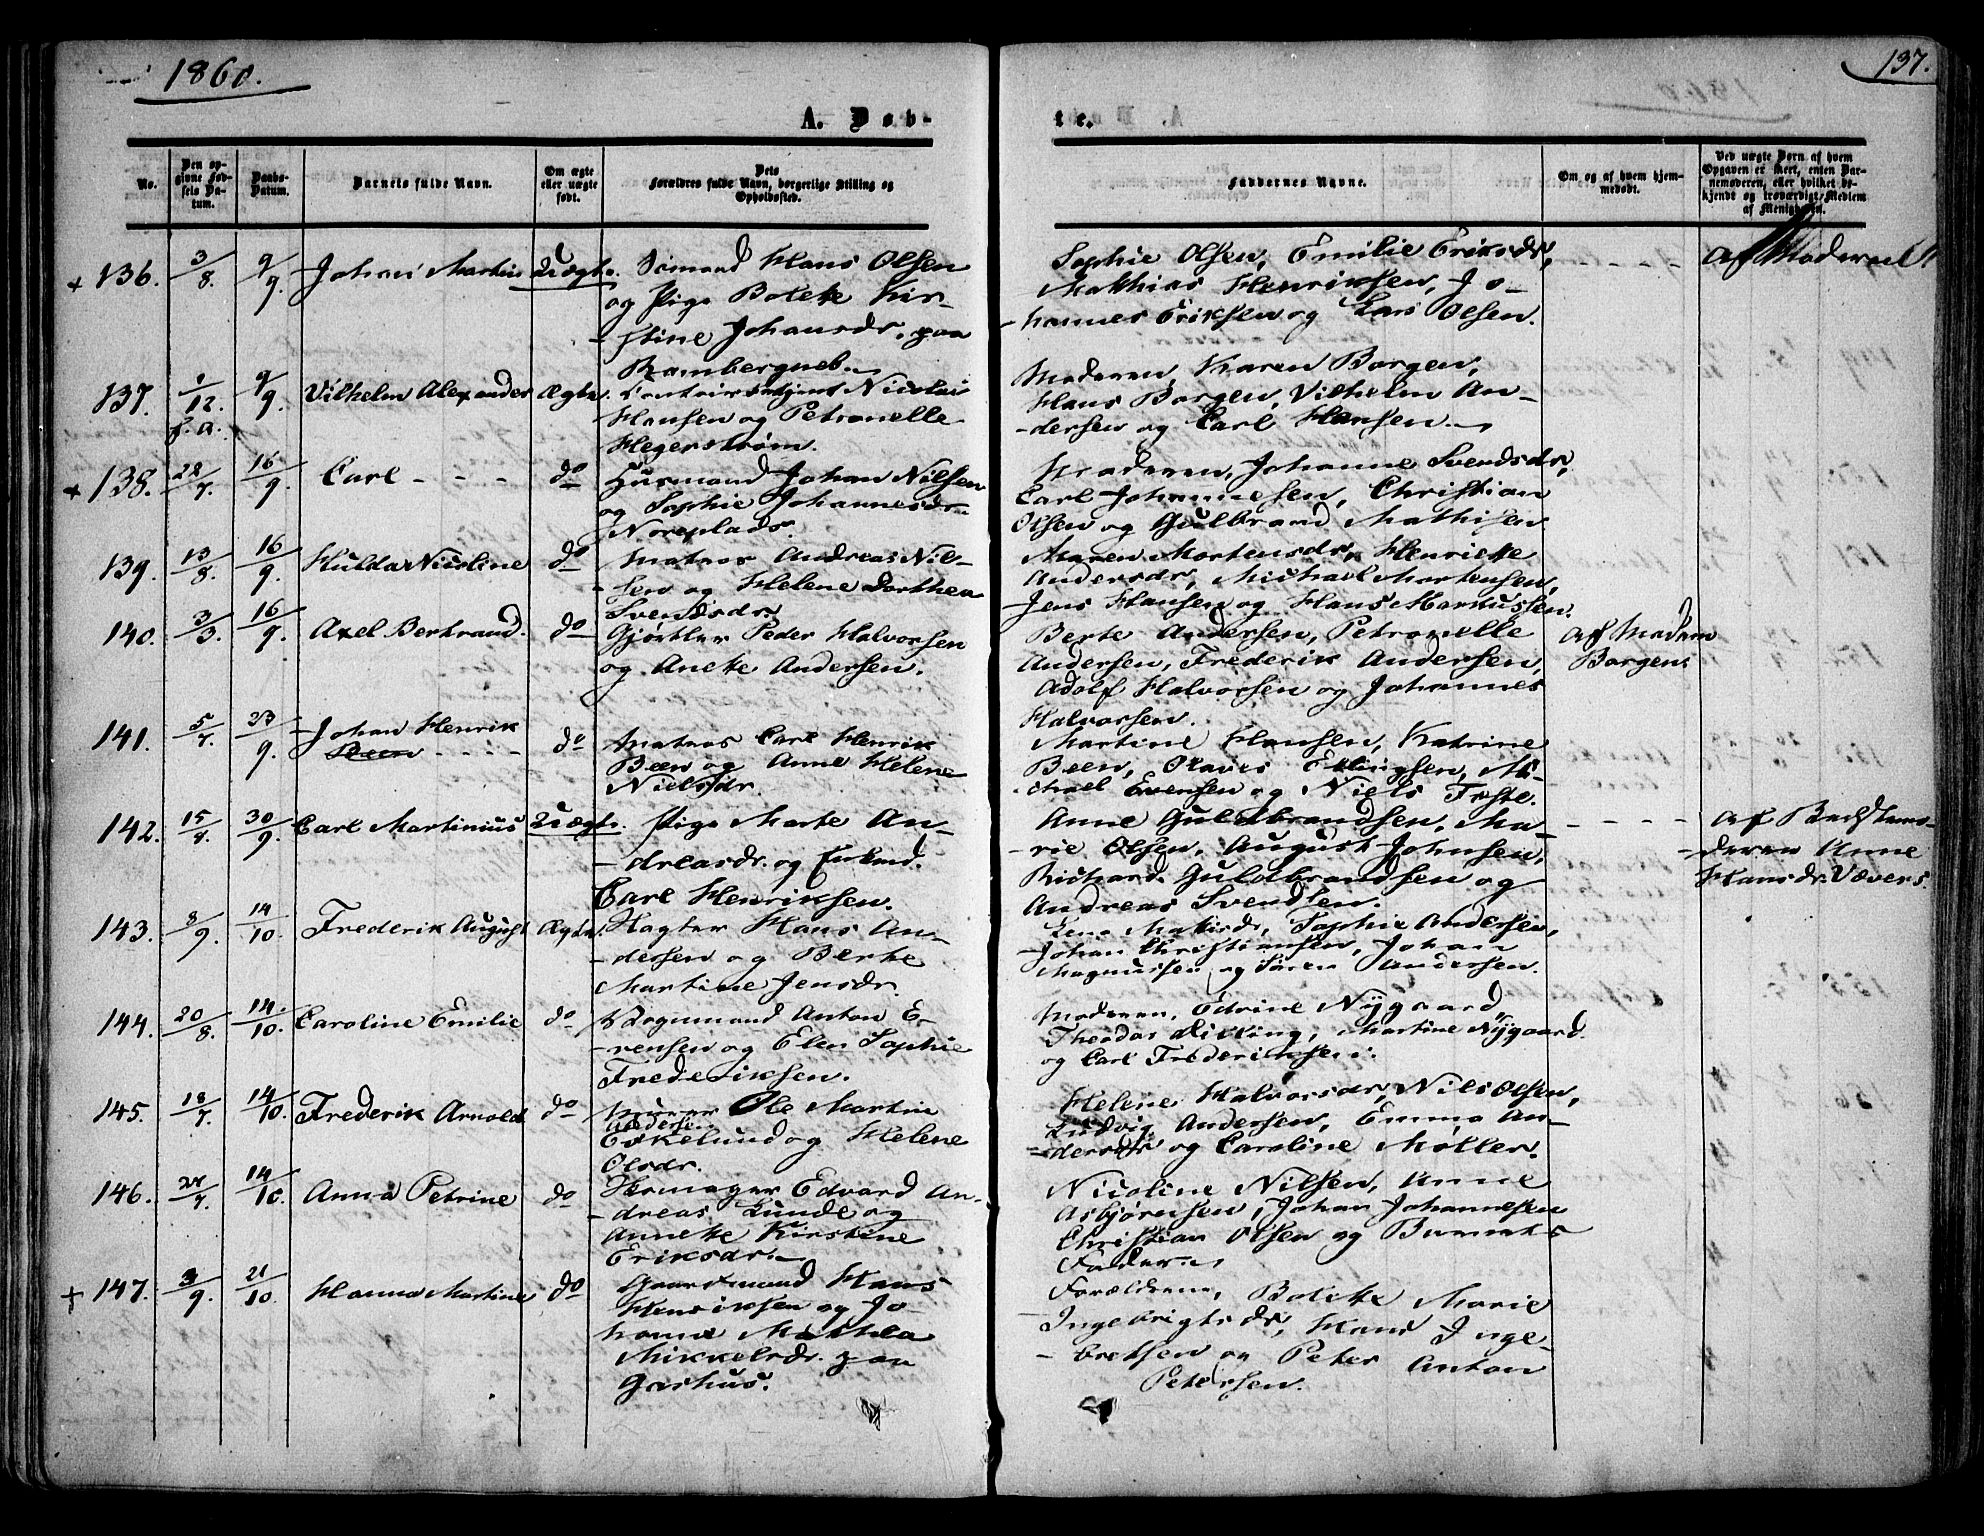 1860.
137.
A. Døb-
te.
No.
Den op-
givne Fød-
sels Da-
tum.
Daabs-
Datum.
Barnets fulde Navn.
Om ægte
eller uægte
født.
Dets
Forældres fulde Navn, borgerlige Stilling og
Opholdssted.
Faddernes Navne.
Om og af hvem hjem-
medøbt.
Ved uægte Børn af hvem
Opgaven er skeet, enten Bar-
nemoderen, eller hvilket be-
kjendt og troværdigt Medlem
af Menigheden.
+ 136. 3/8. 9/9. Johan Martin Uægte. Sømand Hans Olsen
og Pige Bolette Kir-
stine Johansdr. paa
Rambergueb.
Sophie Olsen, Emilie Eriksdr,
Matthias Henriksen, Jo-
hannes Eriksen og Lars Olsen.
- - - - Af Moderen
137. 1/12. f. a. 9/9. Vilhelm Alexander Ægte. Nicolai
Hansen og Petronelle
Hegerstrøm.
Moderen, Karen Borgen,
Hans Borgen, Vilhelm An-
dersen og Carl Hansen.
+ 138. 28/7. 16/9. Carl - - - do Huusmand Johan Nilsen
og Sophie Johannesdr.
Noreplads.
Moderen, Johanne Svendsdr,
Carl Johannesen, Christian
Olsen og Gulbrand Mathisen
139. 13/8. 16/9. Hulda Nicoline do Matros Andreas Nil-
sen og Helene Dorthea
Svendsdr.
Maren Mortensdr, Henriette
Andersdr, Michael Mortensen,
Jens Hansen og Hans Markussen.
140. 3/3. 16/9. Axel Bertrand. do Gjørtler Peder Halvorsen
og Anette Andersen.
Berte Andersen, Petronelle
Andersen, Frederik Andersen,
Adolf Halvorsen og Johannes
Halvorsen.
Af Madam
Borgens
141. 5/7. 23/9. Johan Henrik
- - - - do Matros Carl Henrik
Been og Anne Helene
Nielsdr.
Martine Hansen, Katrine
Been, Olaves Ellingsen, Mi-
chael Evensen og Niels Feste.
142. 15/4. 30/9. Carl Martinius Uægte. Pige Marte An-
dreasdr. og
Carl Henriksen.
Anne Guldbrandsen, Ma-
rie Olsen, August Johnsen,
Richard Guldbrandsen og
Andreas Svendsen.
- - - - Af
Anne
Hansdr. Vævers.
143. 8/9. 14/10. Frederik August Ægte. Hans An-
dersen og Berte
Martine Jensdr.
Lene Matisdr, Sophie Andersen,
Johan Christiansen, Johan
Magnussen og Søren Andersen.
144. 20/8. 14/10. Caroline Emilie do Vognmand Anton E-
vensen og Elen Sophie
Frederiksen.
Moderen, Edvine Nygaard
Theodor Martine Nygaard.
og Carl Frederiksen.
145. 18/7. 14/10. Frederik Arnold do Murer Ole Martin
Andersen
Eekelund og Helene
Olsdr.
Helene Halvorsdr, Nils Olsen,
Ludvig Andersen, Emma An-
dersdr og Caroline Møller.
146. 24/7. 14/10. Anna Petrine do Edvard An-
dreas Lunde og
Annette Kirstine
Eriksdr.
Nicoline Nilsen, Anne
Asbjørnsen, Johan Johannesen
Christian Olsen og Barnets
Fader.
+ 147. 3/9. 21/10. Hanna Martine do Gaardmand Hans
Henriksen og Jo-
hanne Mathea
Mikkelsdr. paa
Garhus.
Forældrene, Bolette Marie
Ingebrigtsdr, Hans Inge-
bretsen og Peter Anton
Petersen.